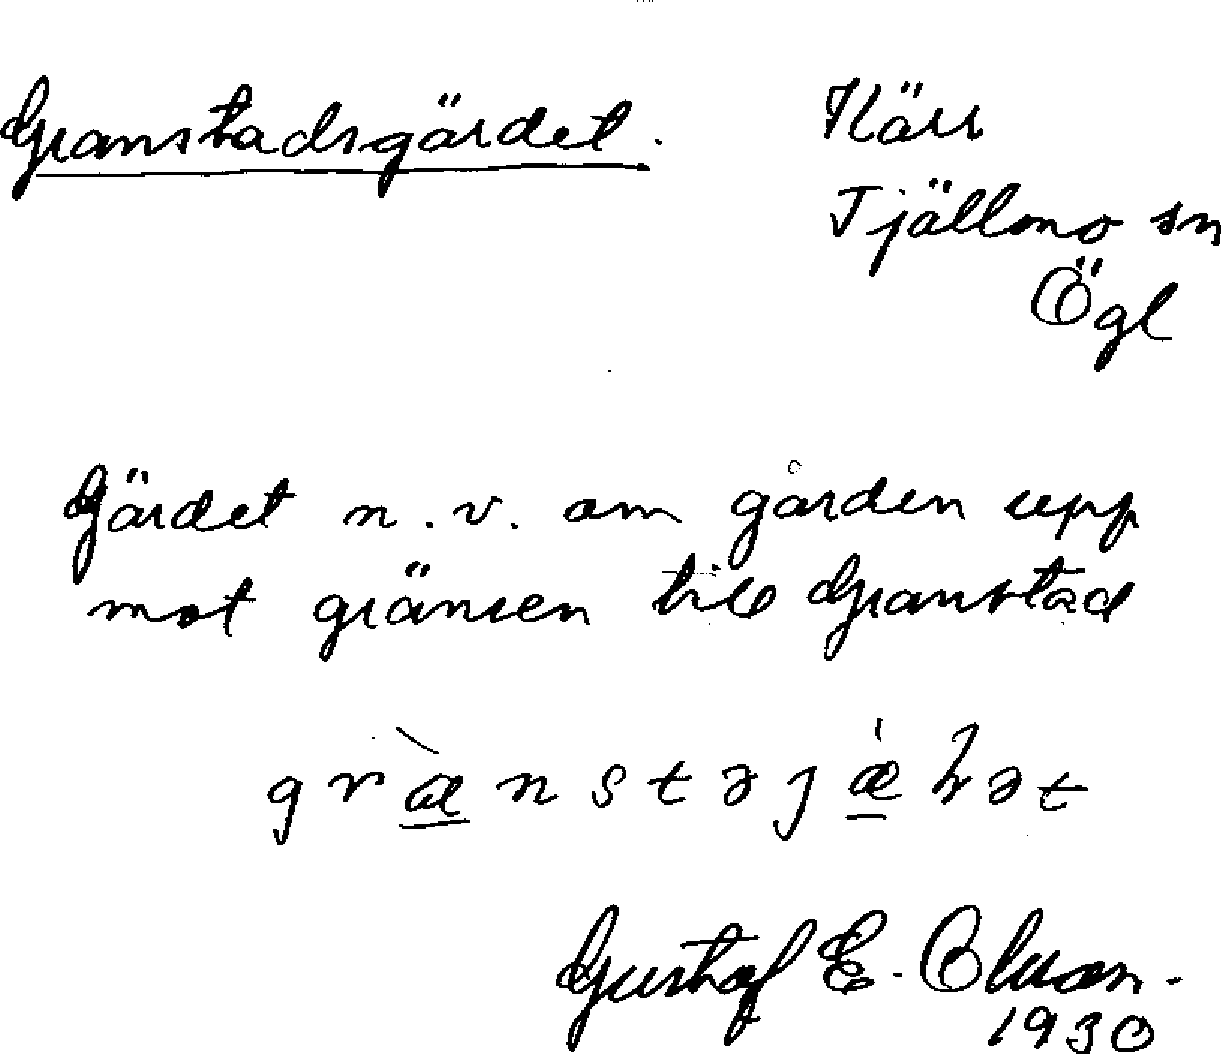 Granstadsgärdet.
Kärr
Tjällmo sn
Ögl
Gärdet n.v. om gården upp
mot gränsen till Granstad
Gustaf E. Olsson.
1930